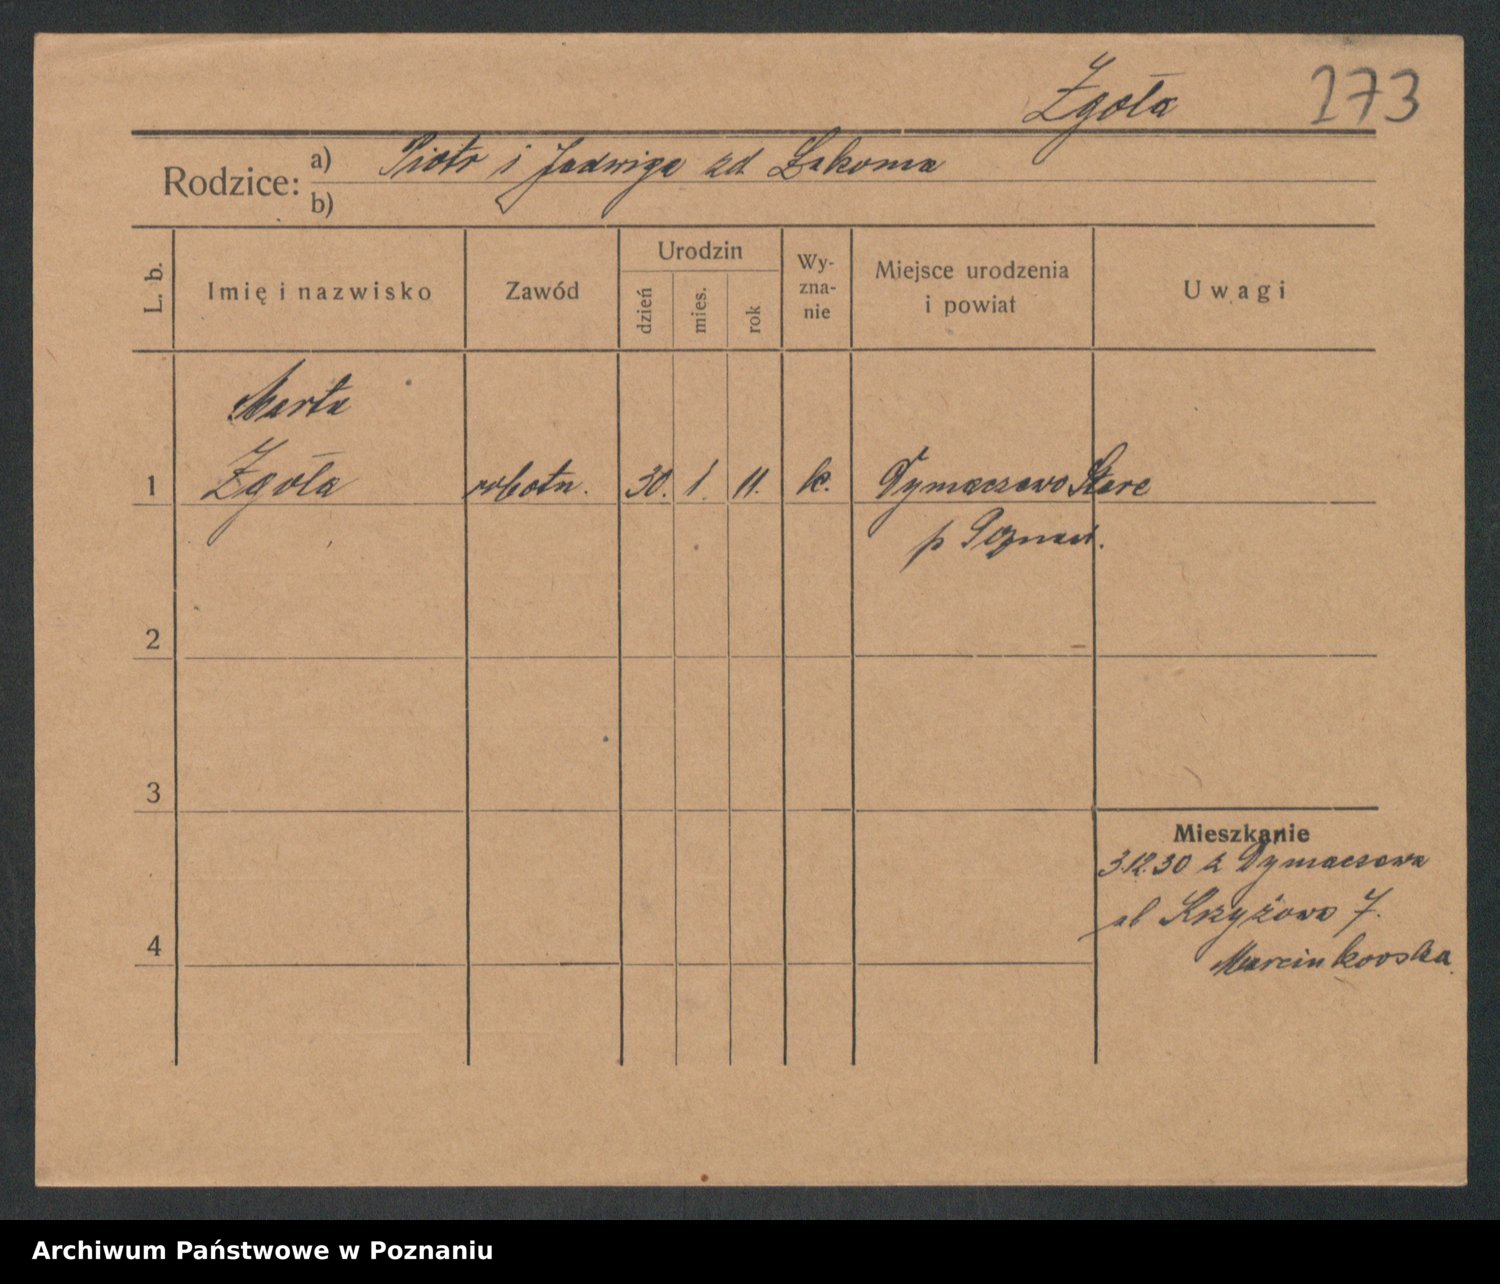 Zgoła 273
Rodzice: a) Piotr i Jadwiga zd Łakoma
b)
L. b. Imię i nazwisko Zawód Urodzin dzień mies. rok Wy-zna-nie Miejsce urodzenia i powiat Uwagi
Marta
1 Zgoła robotn. 30. 1. 11. k. Dymaczewo Stare
p Poznań.
2
3
Mieszkanie
3.12.30 z Dymaczewa
ul Krzyżowa 7.
4 Marcinkowska
Archiwum Państwowe w Poznaniu